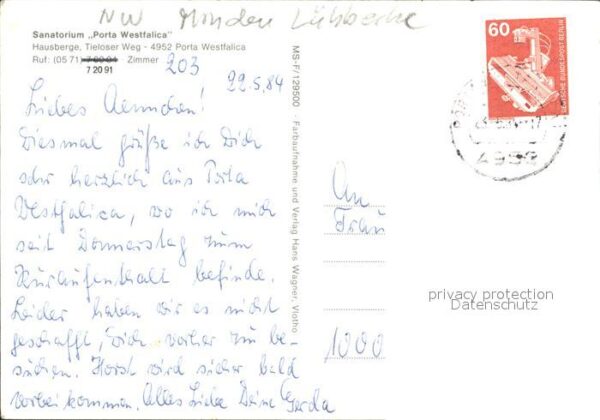 NW Minden Lübbecke
Sanatorium „Porta Westfalica"
Hausberge, Tieloser Weg - 4952 Porta Westfalica
Ruf: (05 71) Zimmer 203
7 20 91
22.5.84
Liebes Aennchen!
Diesmal grüße ich Dich
sehr herzlich aus Porta
Westfalica, wo ich mich
seit Donnerstag zum
Kuraufenthalt befinde.
Leider haben wir es nicht
geschafft, Dich vorher zu be-
suchen. Horst wird sicher bald
vorbei kommen. Alles Liebe Deine Gerda
MS-F/129500 - Farbaufnahme und Verlag Hans Wagner, Vlotho
60
DEUTSCHE BUNDESPOST BERLIN
An
Frau
1000
privacy protection
Datenschutz